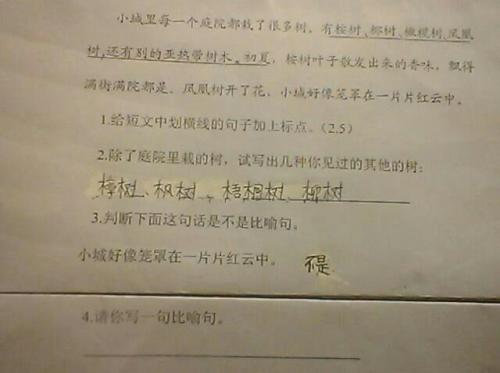 小城里每一个庭院都栽了很多树。有桉树、椰树、橄榄树、凤凰
树,还有别的亚热带树木。初夏,桉树叶子散发出来的香味,飘得
满街满院都是。凤凰树开了花,小城好像笼罩在一片片红云中。
1.给短文中划横线的句子加上标点。(2.5)
2.除了庭院里栽的树,试写出几种你见过的其他的树:
樟树、枫树、梧桐树、柳树
3.判断下面这句话是不是比喻句。
小城好像笼罩在一片片红云中。 不是
4.请你写一句比喻句。